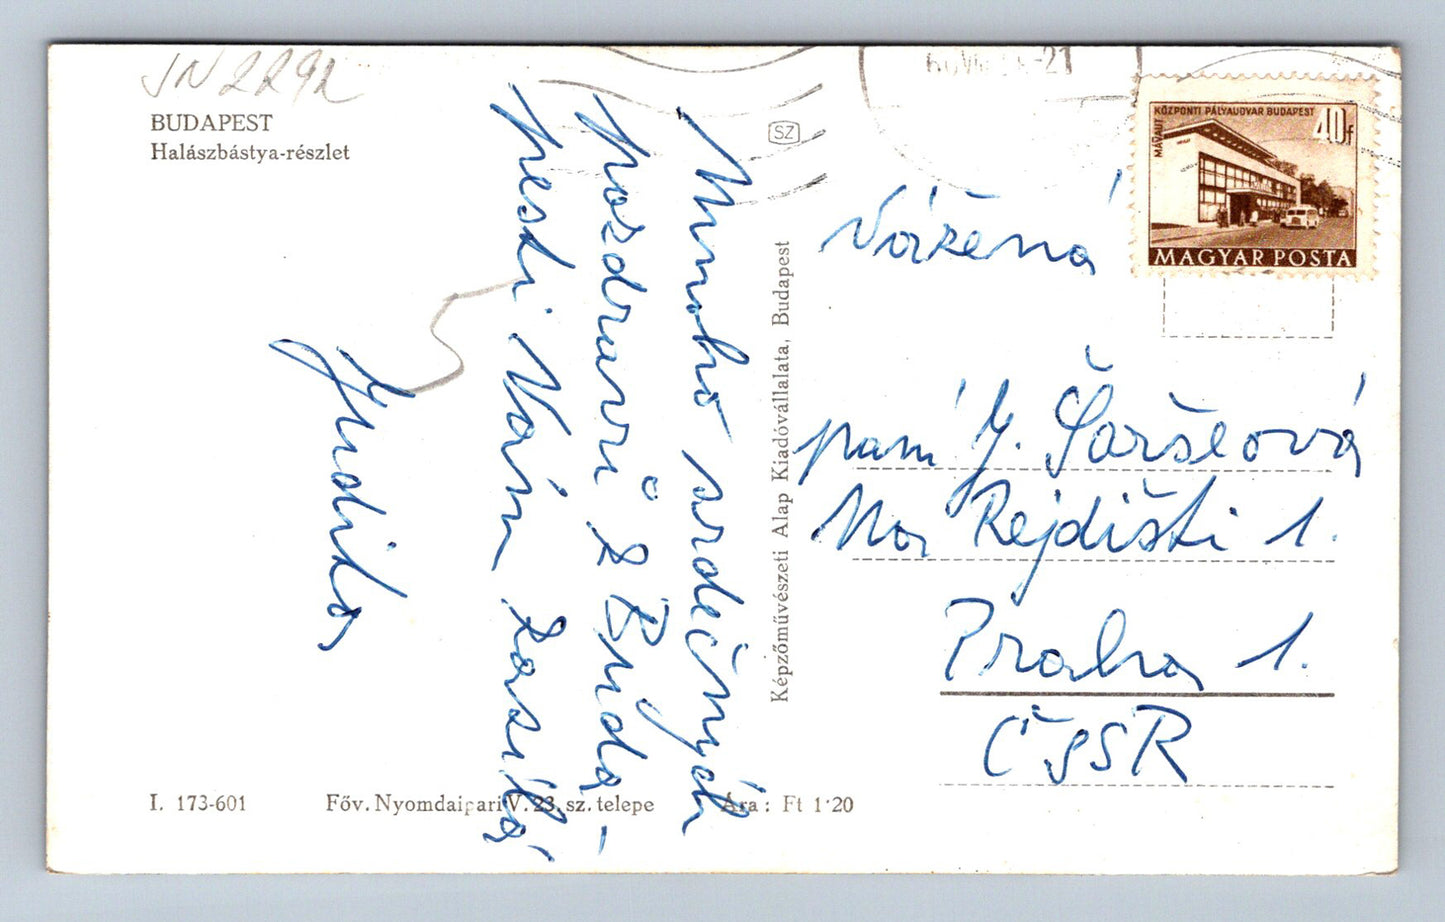 JN 2292
BUDAPEST
Halászbástya-részlet
Mnoho srdečných
pozdravů z Buda-
pesti Vám zasílá
Judita
I. 173-601
Főv. Nyomdaipari V. 23. sz. telepe
Ára: Ft 1·20
Képzőművészeti Alap Kiadóvállalata, Budapest
SZ
-21
KÖZPONTI PÁLYAUDVAR BUDAPEST
MÁVAUT
40f
MAGYAR POSTA
Vážená
paní J.
Na Rejdišti 1.
Praha 1.
ČSSR